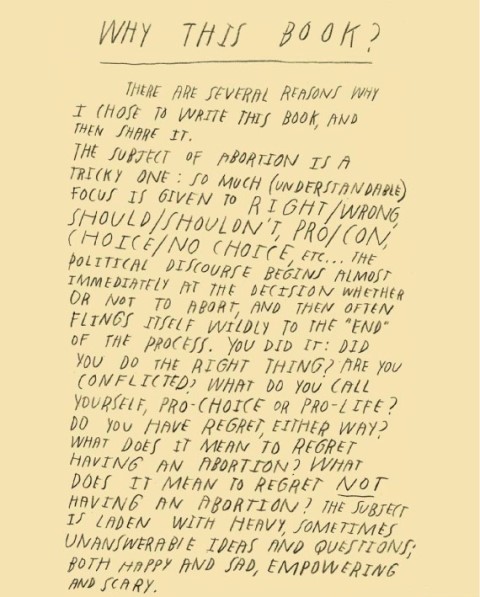 WHY THIS BOOK?
THERE ARE SEVERAL REASONS WHY
I CHOSE TO WRITE THIS BOOK, AND
THEN SHARE IT.
THE SUBJECT OF ABORTION IS A
TRICKY ONE: SO MUCH (UNDERSTANDABLE)
FOCUS IS GIVEN TO RIGHT/WRONG,
SHOULD/SHOULDN'T, PRO/CON,
CHOICE/NO CHOICE, ETC... THE
POLITICAL DISCOURSE BEGINS ALMOST
IMMEDIATELY AT THE DECISION WHETHER
OR NOT TO ABORT, AND THEN OFTEN
FLINGS ITSELF WILDLY TO THE "END"
OF THE PROCESS. YOU DID IT: DID
YOU DO THE RIGHT THING? ARE YOU
CONFLICTED? WHAT DO YOU CALL
YOURSELF, PRO-CHOICE OR PRO-LIFE?
DO YOU HAVE REGRET, EITHER WAY?
WHAT DOES IT MEAN TO REGRET
HAVING AN ABORTION? WHAT
DOES IT MEAN TO REGRET NOT
HAVING AN ABORTION? THE SUBJECT
IS LADEN WITH HEAVY, SOMETIMES
UNANSWERABLE IDEAS AND QUESTIONS;
BOTH HAPPY AND SAD, EMPOWERING
AND SCARY.